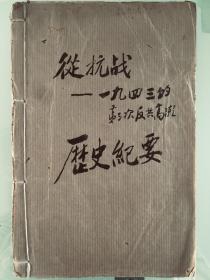 從抗战
—一九四三的
第三次反共高潮
歷史紀要